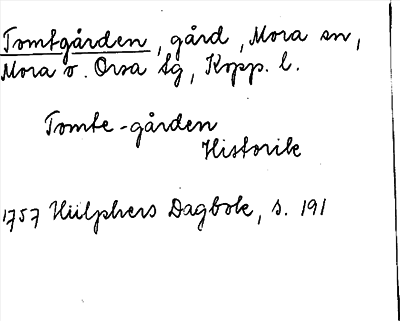 Tomtgården, gård, Mora sn,
Mora o. Orsa tg, Kopp. l.
Tomte-gården
Historik
1757 Hülphers Dagbok, s. 191